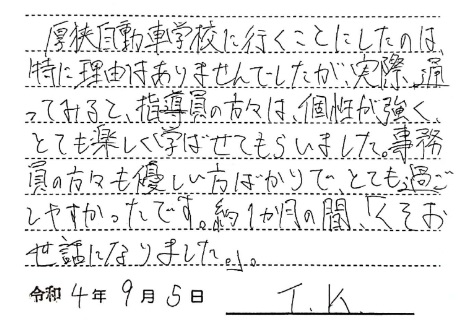 厚狭自動車学校に行くことにしたのは、
特に理由はありませんでしたが、実際、通
ってみると、指導員の方々は、個性が強く、
とても楽しく学ばせてもらいました。事務
員の方々も優しい方ばかりで、とても過ご
しやすかったです。約1か月の間、「くそお
世話になりました。」。
令和 4 年 9 月 5 日 T.K.